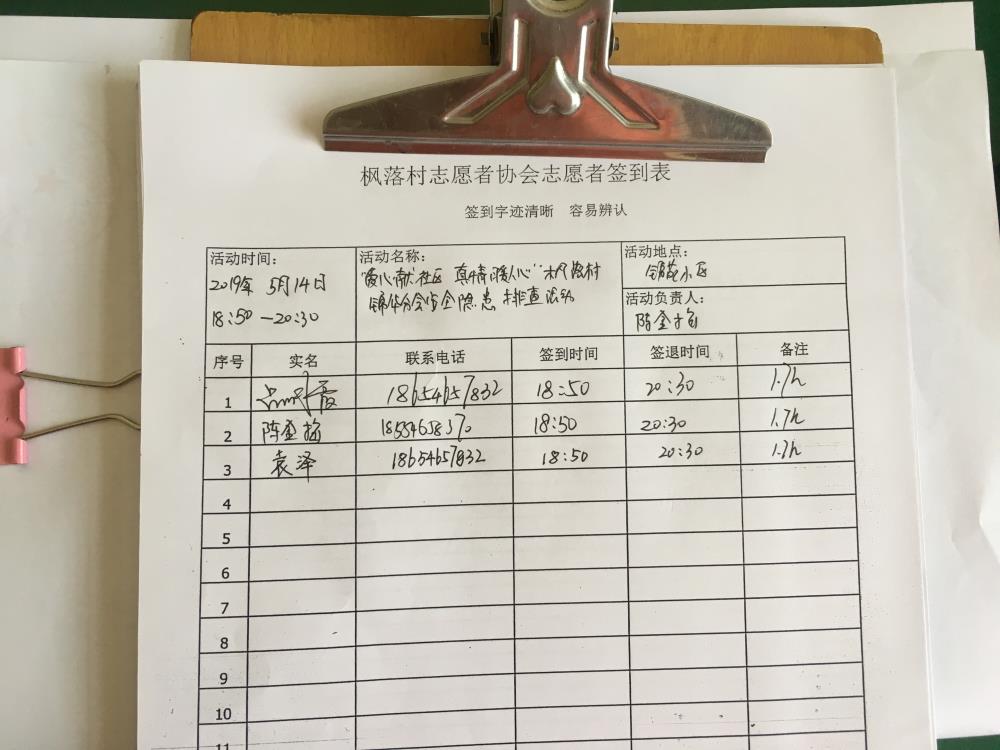 枫落村志愿者协会志愿者签到表
签到字迹清晰 容易辨认
活动时间: 活动名称: 活动地点:
2019年 5月14日 "爱心献社区 真情暖人心" 枫落村 锦花小区
18:50—20:30 锦华分会安全隐患排查活动 活动负责人:
陈金
序号 实名 联系电话 签到时间 签退时间 备注
1 18654657832 18:50 20:30 1.7h
2 陈金 18:50 20:30 1.7h
3 袁泽 18654657832 18:50 20:30 1.7h
4
5
6
7
8
9
10
11